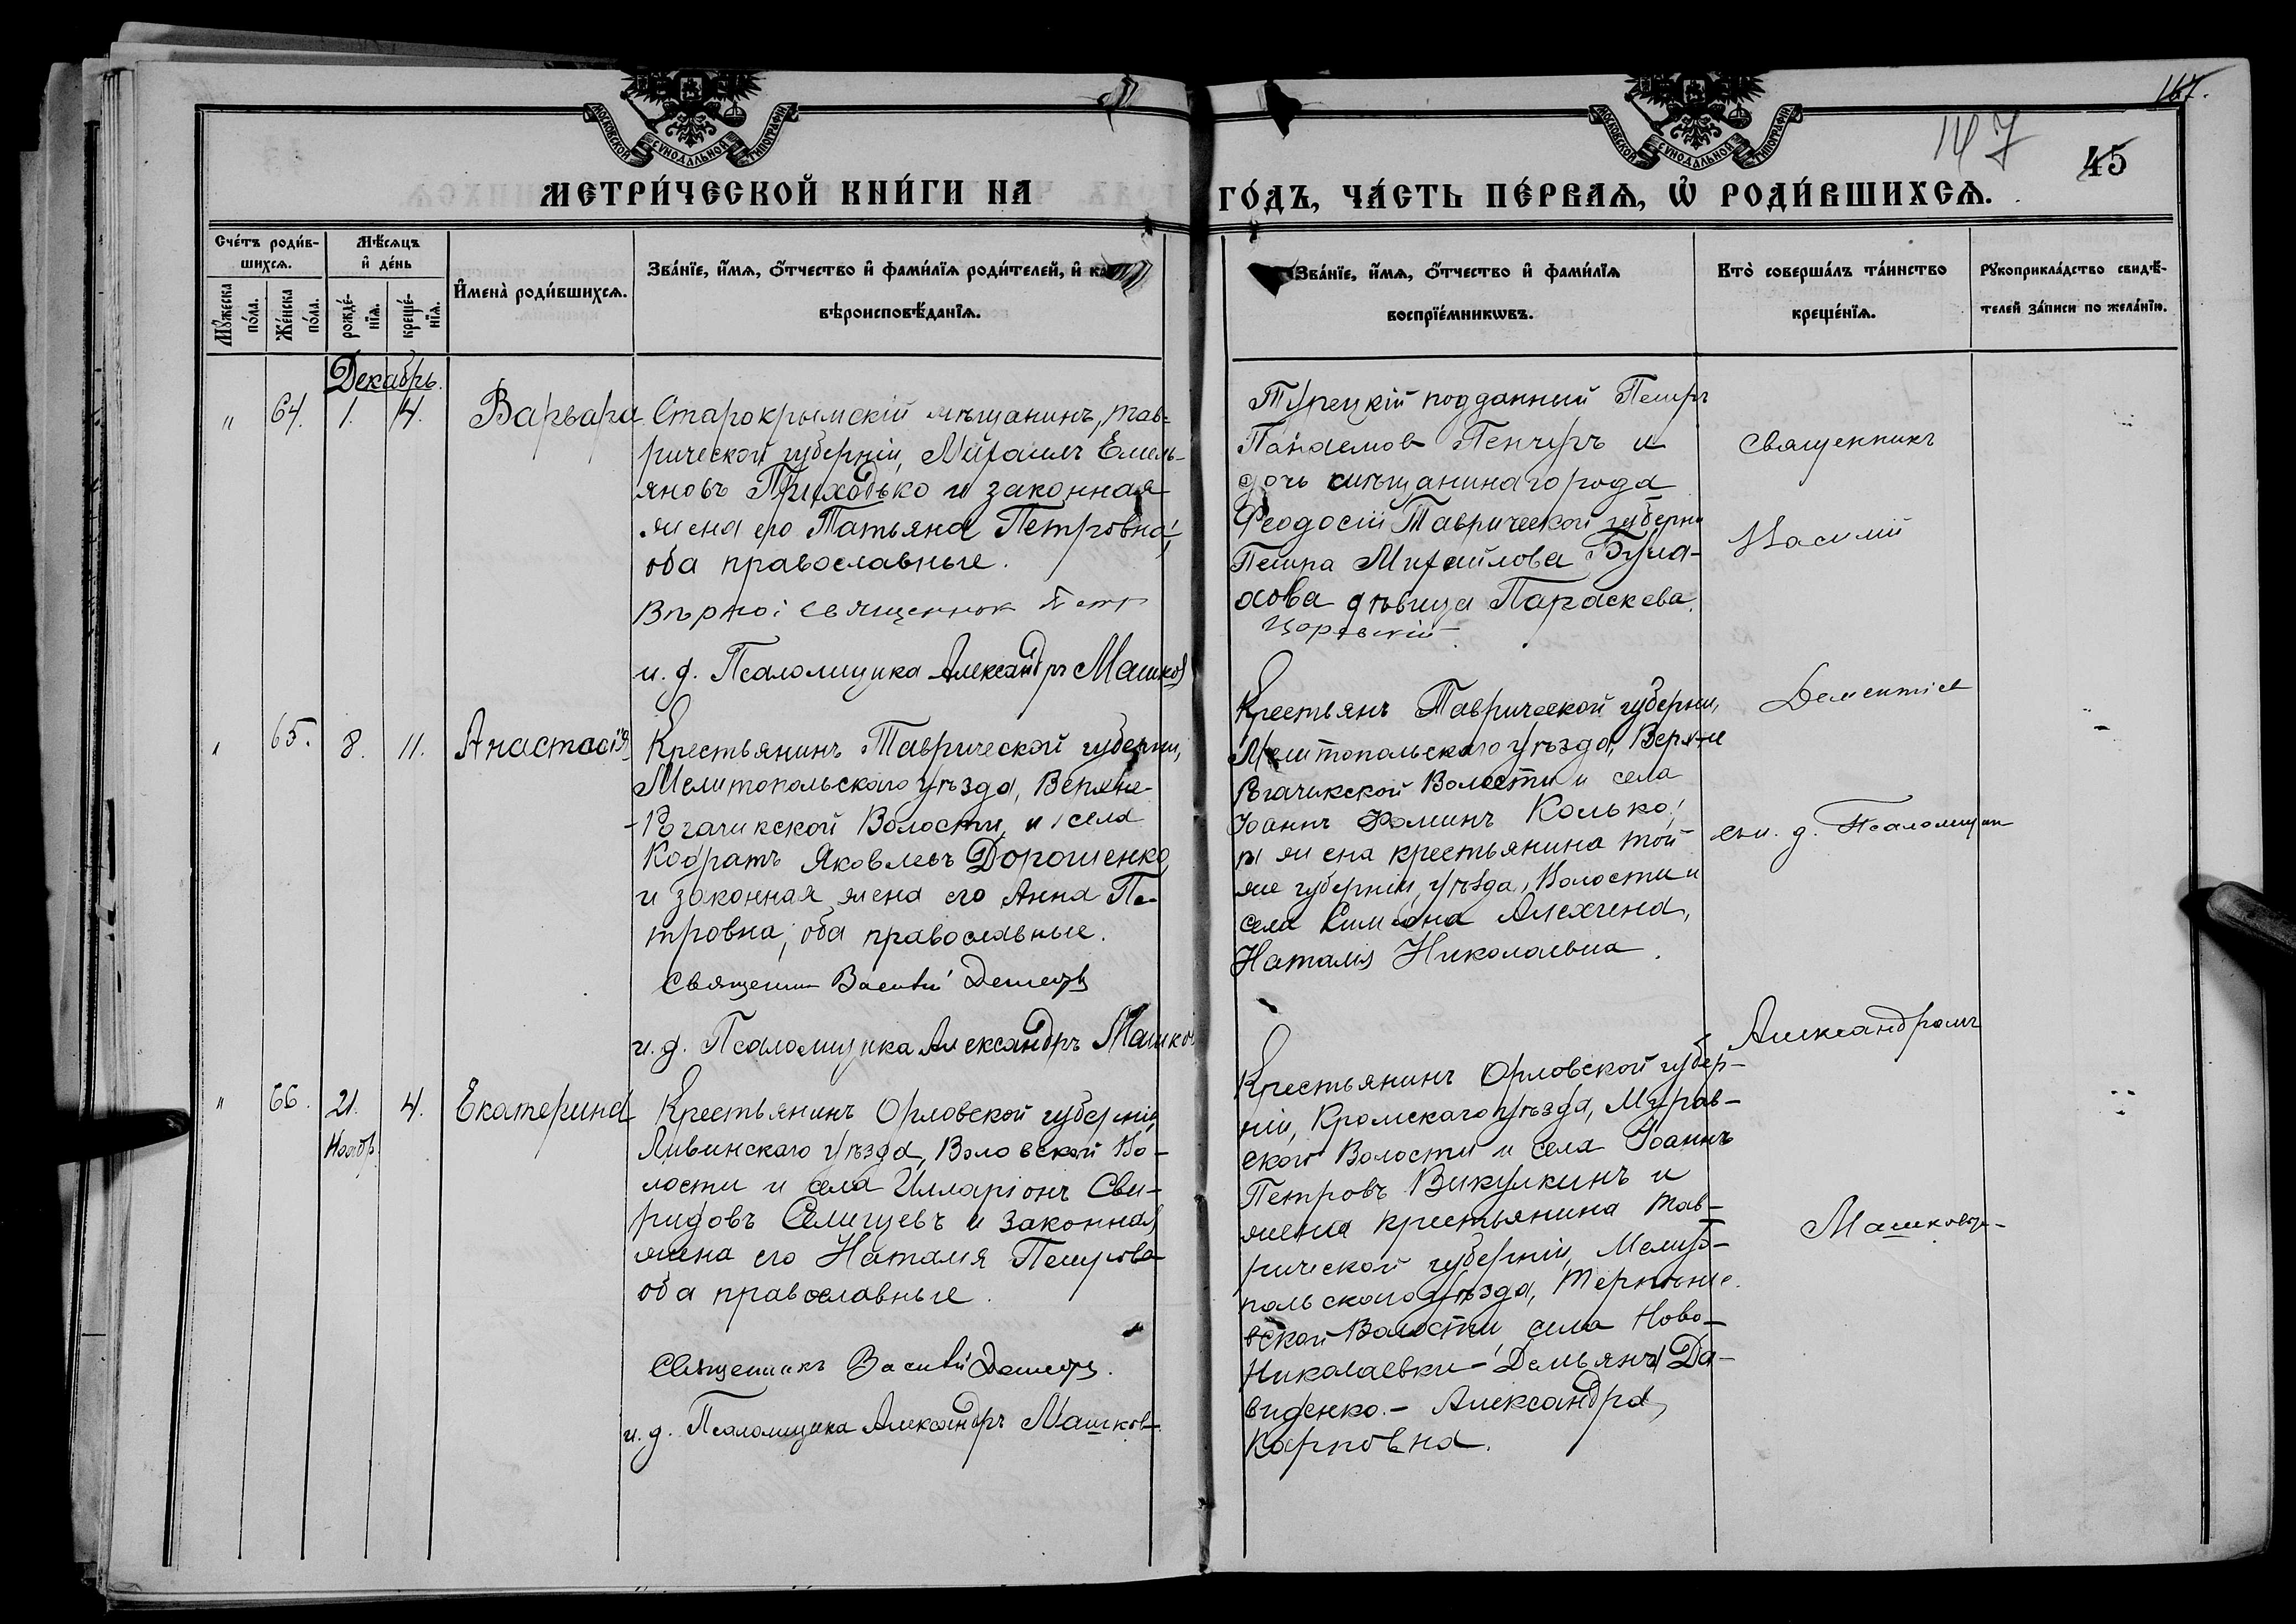 167.
147
45
МОСКОВСКОЙ СѴНОДАЛЬНОЙ ТИПОГРАФІИ
МОСКОВСКОЙ СѴНОДАЛЬНОЙ ТИПОГРАФІИ
МЕТРИ́ЧЕСКОЙ КНИ́ГИ НА
ГО́ДЪ, ЧА́СТЬ ПЕ́РВАѦ, Ѡ҆ РОДИ́ВШИХСѦ.
Сче́тъ роди́в-
шихсѧ.
Мѣ́сѧцъ
и҆ де́нь
Мꙋ́жеска
по́ла.
Же́нска
по́ла.
рожде́-
нїѧ.
креще́-
нїѧ.
И҆мена̀ роди́вшихсѧ.
Зва́нїе, и҆́мѧ, ѻ҆́тчество и҆ фами́лїѧ роди́телей, и҆
вѣроисповѣ́данїѧ.
Зва́нїе, и҆́мѧ, ѻ҆́тчество и҆ фами́лїѧ
воспрїе́мникѡвъ.
Кто̀ соверша́лъ та́инство
креще́нїѧ.
Рꙋкоприкла́дство свидѣ́-
телей за́писи по жела́нїю.
Декабрь.
" 64. 1. 14. Варвара
Старокрымскій мѣщанинъ, Тав-
рической губерніи, Михаилъ Емель-
яновъ Приходько и законная
жена его Татьяна Петровна,
оба православные.
Вѣрно: священник Петр
и. д. Псаломщика Александръ Машков
Турецкій подданный Петръ
Пенчуръ и
дочь мѣщанина города
Феодосіи Таврической губерни
Петра Михаилова Була-
хова дѣвица Параскева.
Священникъ
Василій
Дементіев
" 65. 8. 11. Анастасія
Крестьянинъ Таврической губерніи,
Мелитопольскаго уѣзда, Верхне-
-Рогачикской Волости и села
Кодратъ Яковлевъ Дорошенко
и законная жена его Анна Пе-
тровна, оба православные.
Священник Василій
и. д. Псаломщика Александръ Машков
Крестьянъ Таврической губерніи,
Мелитопольскаго уѣзда, Верхне
Рогачикской Волости и села
Іоаннъ Фоминъ Колько,
и жена крестьянина той
же губерніи, уѣзда, Волости и
села Симеона Алехина,
Наталія Николаевна.
съ и. д. Псаломщик
Александромъ
" 66. 21. 4. Екатерина
Ноябр.
Крестьянинъ Орловской губерніи,
Ливинскаго уѣзда, Воловской Во-
лости и села Илларіонъ Сви-
ридовъ Селищевъ и законная
жена его Наталія Петрова
оба православные.
Священникъ Василій
и. д. Псаломщика Александръ Машков
Крестьянинъ Орловской губер-
ніи, Кромскаго уѣзда, Мурав-
ской Волости и села Іоаннъ
Петровъ Викулкинъ и
жена крестьянина Тав-
рической губерніи, Мелито-
польскаго уѣзда, Терпѣніе-
вской Волости села Ново-
Николаевки - Демьяна Да-
виденко. - Александра
Карповна.
Машковым